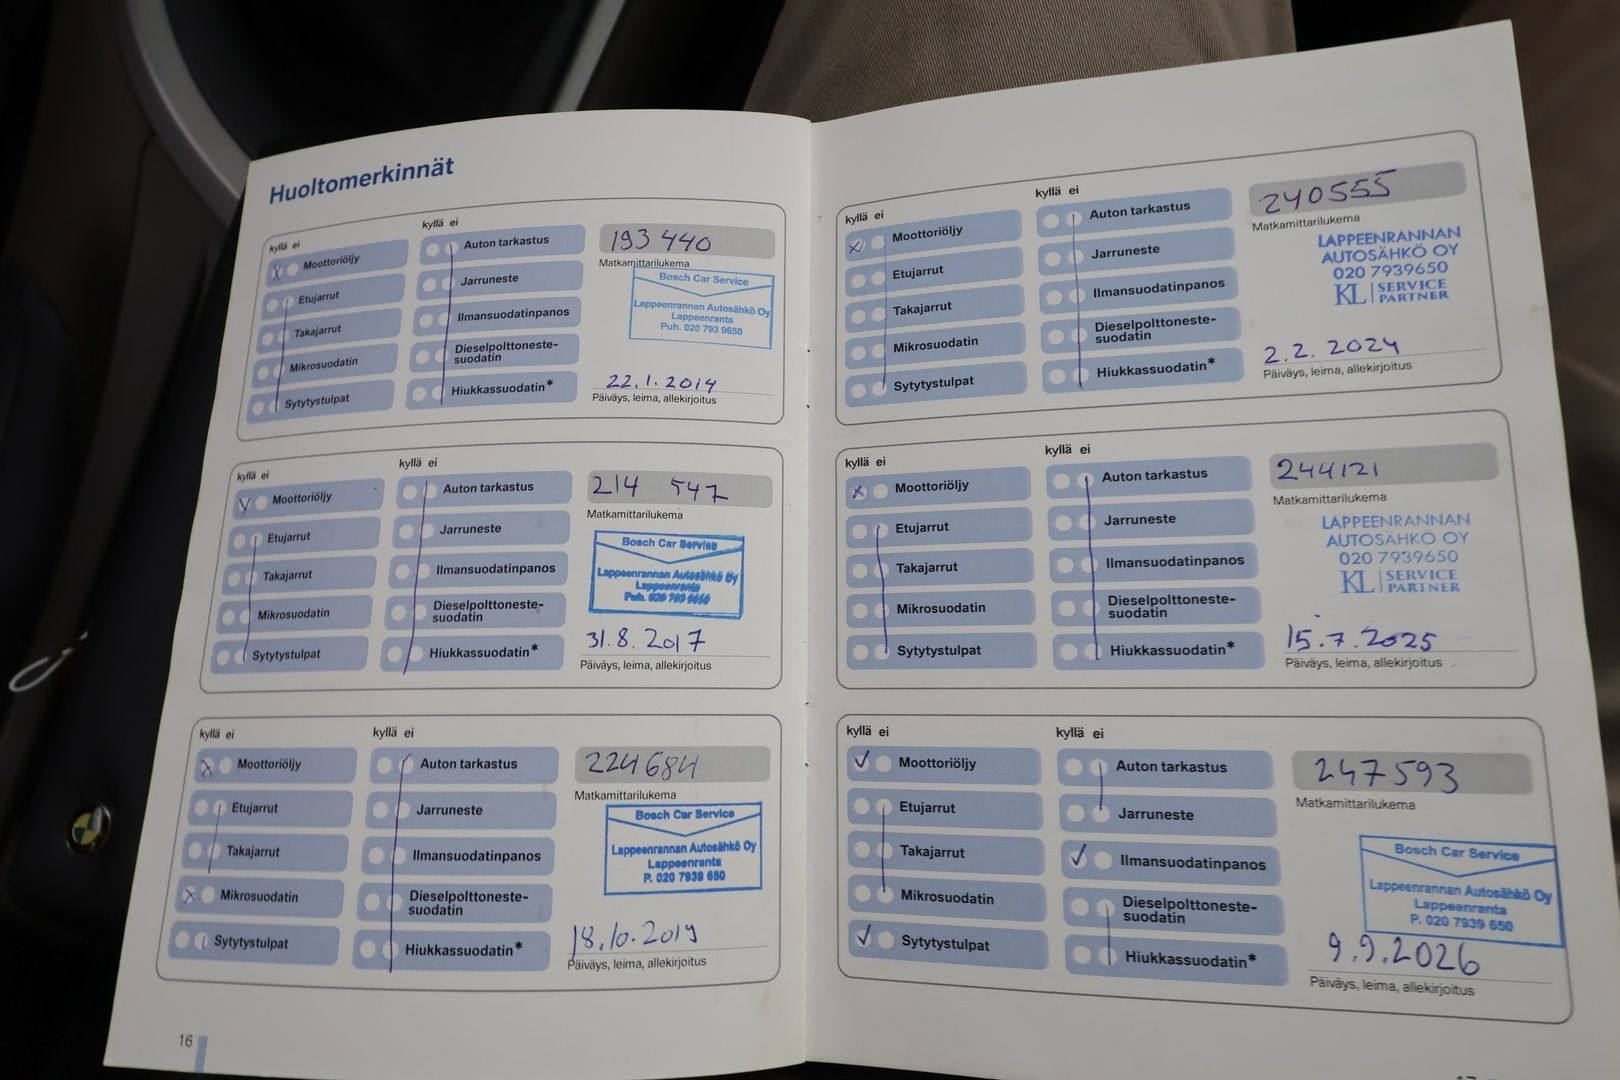 Huoltomerkinnät
kyllä ei
Moottoriöljy
Etujarrut
Takajarrut
Mikrosuodatin
Sytytystulpat
kyllä ei
Auton tarkastus
Jarruneste
Ilmansuodatinpanos
Dieselpolttoneste-
suodatin
Hiukkassuodatin*
193 440
Matkamittarilukema
Bosch Car Service
Lappeenrannan Autosähkö Oy
Lappeenranta
Puh. 020 793 9650
22.1.2014
Päiväys, leima, allekirjoitus
kyllä ei
Moottoriöljy
Etujarrut
Takajarrut
Mikrosuodatin
Sytytystulpat
kyllä ei
Auton tarkastus
Jarruneste
Ilmansuodatinpanos
Dieselpolttoneste-
suodatin
Hiukkassuodatin*
214 547
Matkamittarilukema
Bosch Car Service
Lappeenrannan Autosähkö Oy
Lappeenranta
Puh. 020 793 9650
31.8.2017
Päiväys, leima, allekirjoitus
kyllä ei
Moottoriöljy
Etujarrut
Takajarrut
Mikrosuodatin
Sytytystulpat
kyllä ei
Auton tarkastus
Jarruneste
Ilmansuodatinpanos
Dieselpolttoneste-
suodatin
Hiukkassuodatin*
224684
Matkamittarilukema
Bosch Car Service
Lappeenrannan Autosähkö Oy
Lappeenranta
P. 020 7939 650
18.10.2019
Päiväys, leima, allekirjoitus
16
kyllä ei
Moottoriöljy
Etujarrut
Takajarrut
Mikrosuodatin
Sytytystulpat
kyllä ei
Auton tarkastus
Jarruneste
Ilmansuodatinpanos
Dieselpolttoneste-
suodatin
Hiukkassuodatin*
240555
Matkamittarilukema
LAPPEENRANNAN
AUTOSÄHKÖ OY
020 7939650
KL SERVICE
PARTNER
2.2.2024
Päiväys, leima, allekirjoitus
kyllä ei
Moottoriöljy
Etujarrut
Takajarrut
Mikrosuodatin
Sytytystulpat
kyllä ei
Auton tarkastus
Jarruneste
Ilmansuodatinpanos
Dieselpolttoneste-
suodatin
Hiukkassuodatin*
244121
Matkamittarilukema
LAPPEENRANNAN
AUTOSÄHKÖ OY
020 7939650
KL SERVICE
PARTNER
15.7.2025
Päiväys, leima, allekirjoitus
kyllä ei
Moottoriöljy
Etujarrut
Takajarrut
Mikrosuodatin
Sytytystulpat
kyllä ei
Auton tarkastus
Jarruneste
Ilmansuodatinpanos
Dieselpolttoneste-
suodatin
Hiukkassuodatin*
247593
Matkamittarilukema
Bosch Car Service
Lappeenrannan Autosähkö Oy
Lappeenranta
P. 020 7939 650
9.9.2026
Päiväys, leima, allekirjoitus